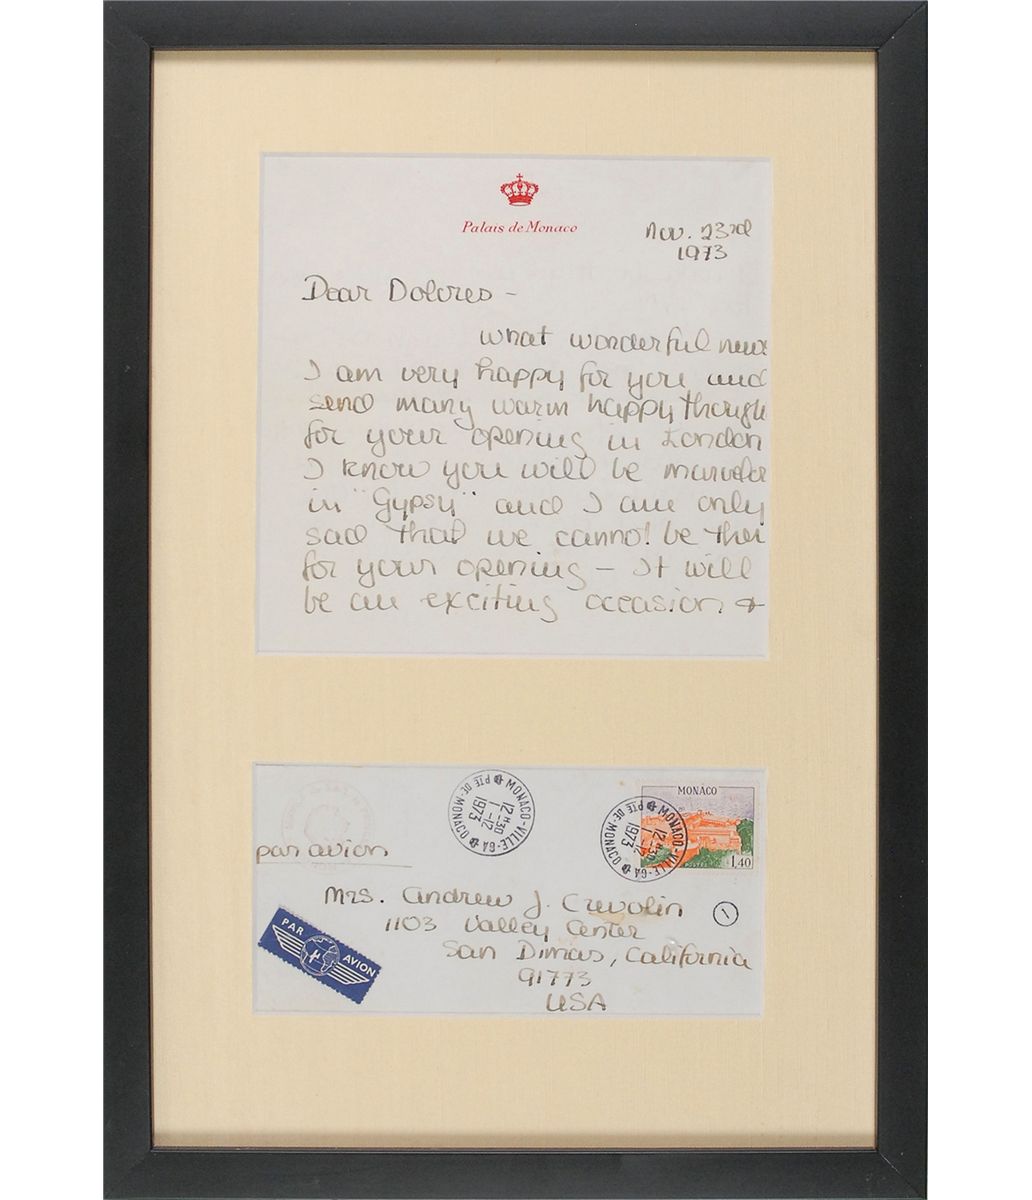 Palais de Monaco
Nov. 23rd
1973
Dear Dolores -
What wonderful news
I am very happy for you and
send many warm happy though
for your opening in London
I know you will be marvelor
in "Gypsy" and I am only
sad that we cannot be ther
for your opening - It will
be an exciting occasion &
MONACO-VILLE-GA
PTE DE-MONACO
12H30
1-12
1973
MONACO
MONACO-VILLE-GA
PTE DE-MONACO
12H30
1-12
1973
POSTES
1,40
par avion
Mrs. Andrew J. Crevolin
1
1103 Valley Center
San Dimas, California
91773
USA
PAR AVION